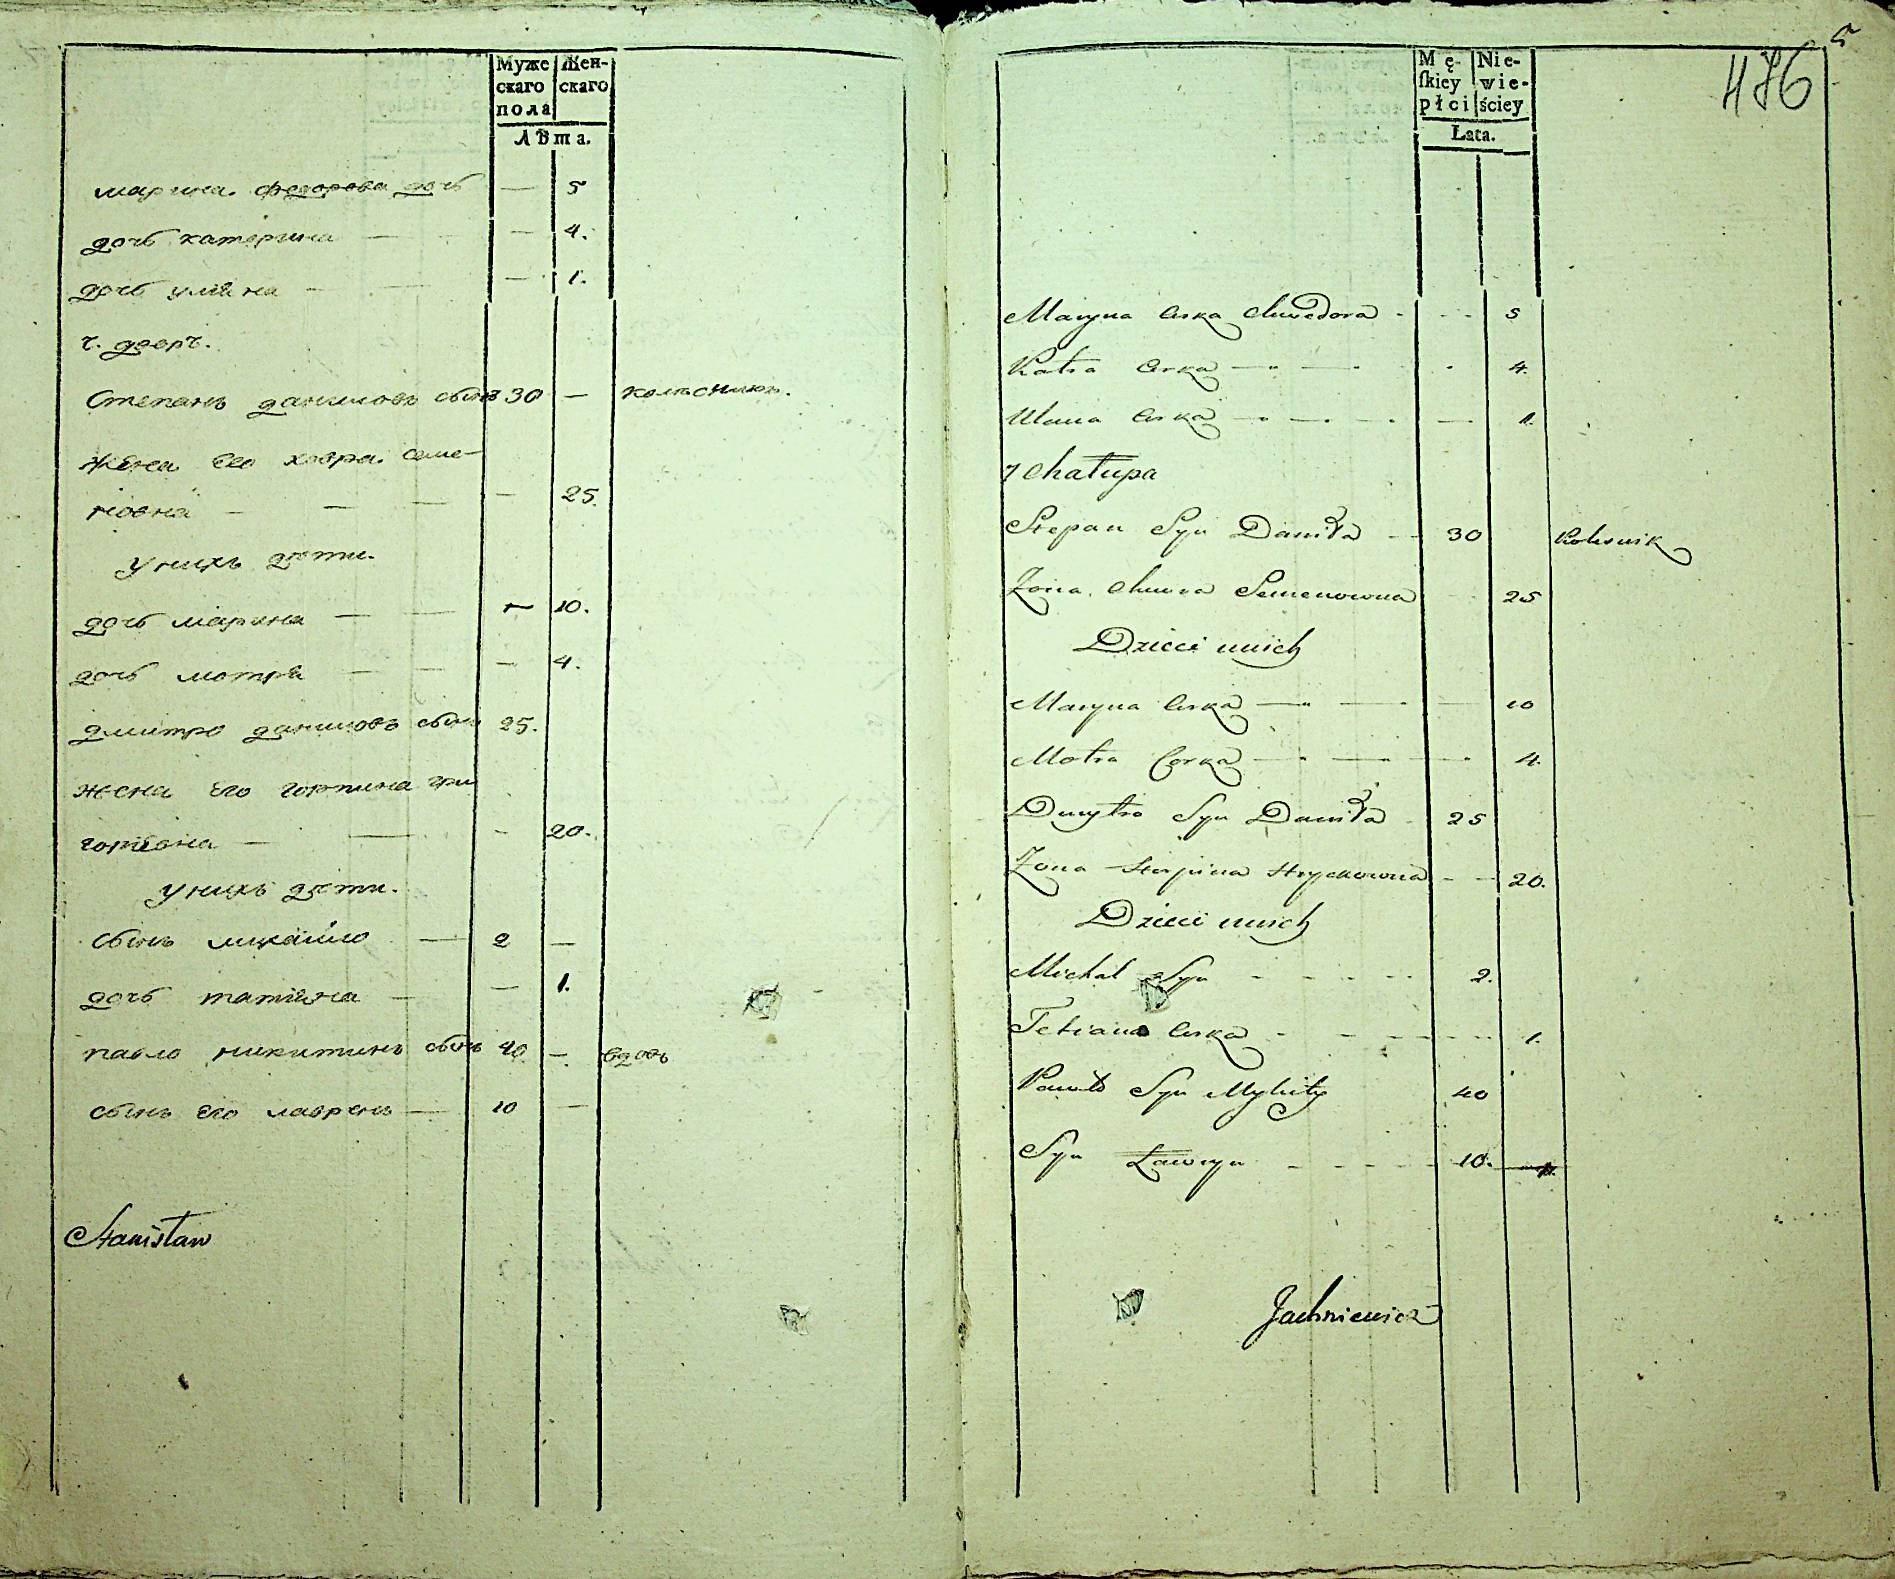 Муже
скаго
пола
Жен-
скаго
Лѣта.
марина федорова дочь — 5
дочь катерина — — 4.
дочь уляна — — 1.
Степанъ даниловъ сынъ 30 — колѣсникъ.
жена его ховра семе-
ніовна — — — — 25.
у нихъ дѣти.
дочь марина — — — 10.
дочь мотря — — — 4.
дмитро даниловъ сынъ 25.
жена его горпина гри
горіевна — — — 20.
у нихъ дѣти.
сынъ михайло — 2 —
дочь татіяна — — 1.
павло никитинъ сынъ 40 — вдовъ
сынъ его лаврѣнъ — 10 —
Stanisław
5
476
Mę-
ſkiey
płci
Nie-
wie-
ściey
Lata.
Maryna Corka Chwedora - - - 5
Katra Corka — — - 4.
Ulana Corka — — — 1.
7 Chałupa
Stepan Syn Daniła - 30 Kolesnik
Żona Chwra Semenowna - 25
Dzieci unich
Maryna Corka — — — 10
Motra Corka — — - 4.
Dmytro Syn Daniła - 25
Żona Horpina Hryckowna - - 20.
Dzieci unich
Michał Syn - - - - 2.
Tetiana Corka - - - - - 1.
Pawło Syn Mykity 40
Syn Ławryn - - - - 10. —
Jachniewicz